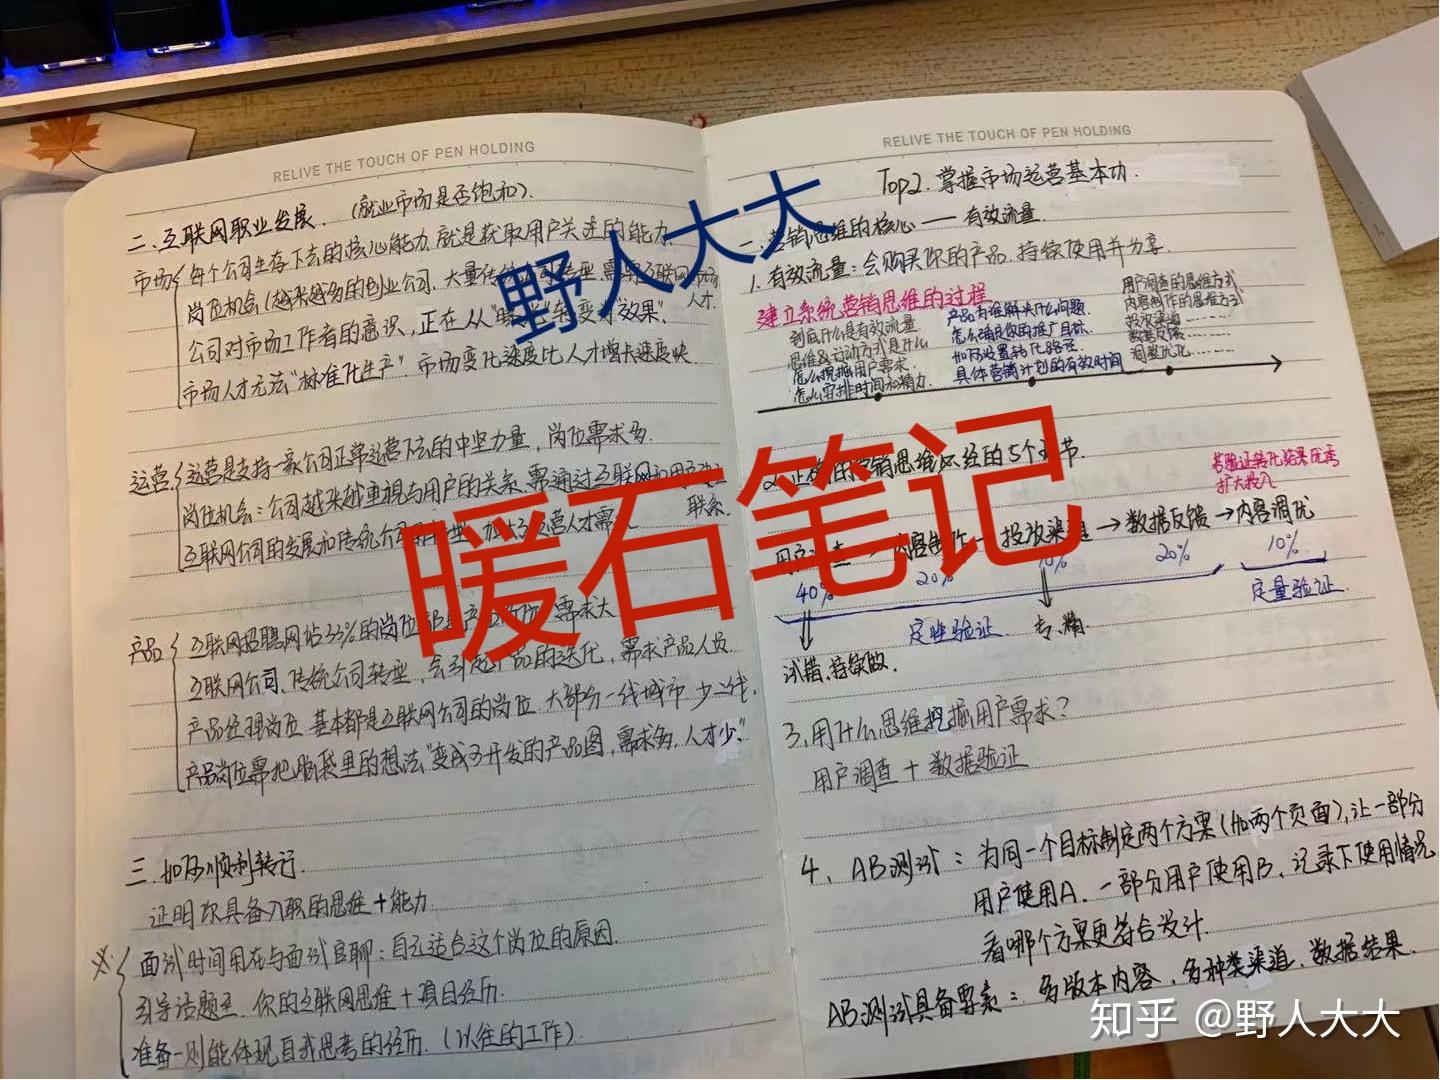 RELIVE THE TOUCH OF PEN HOLDING
二、互联网职业发展. (就业市场是否饱和).
市场 每个公司生存下去的核心能力,就是获取用户关注的能力.
岗位机会(越来越多的创业公司、大量传统公司转型,需要互联网市场人才.
公司对市场工作者的意识,正在从"曝光"转变为"效果".
市场人才无法"标准化生产",市场变化速度比人才增长速度快
运营. 运营是支持一家公司正常运营下去的中坚力量,岗位需求多.
岗位机会:公司越来越重视与用户的关系,需通过互联网和用户建立联系.
互联网公司的发展和传统公司的转型,加大了运营人才需
产品 互联网招聘网站33%的岗位都是产品岗位,需求大
互联网公司、传统公司转型,会引起产品的迭代,需求产品人员.
产品经理岗位基本都是互联网公司的岗位.大部分一线城市,少二线.
产品岗位需把"脑袋里的想法"变成了开发的产品图,需求多,人才少."
三、如何顺利转行.
证明你具备入职的思维+能力.
※ 面试时间用在与面试官聊:自己适合这个岗位的原因.
引导话题至,你的互联网思维+项目经历.
准备一则能体现自我思考的经历.(以往的工作).
RELIVE THE TOUCH OF PEN HOLDING
Top2. 掌握市场运营基本功.
一、营销思维的核心——有效流量.
1. 有效流量:会购买你的产品、持续使用并分享.
建立系统营销思维的过程
到底什么是有效流量
思维&行动方式是什么
怎么挖掘用户需求.
怎么安排时间和精力.
产品为谁解决什么问题.
怎么确定你的推广目标.
如何设置转化路径
具体营销计划的有效时间
用户调查的思维方式
内容制作的思维方式
投放渠道……
数据反馈……
调整优化……
2. 正确的营销思维必经的5个环节.
若验证转化结果优秀
扩大投入
用户调查→内容制作→投放渠道→数据反馈→内容调优
40% 20% 10% 20% 10%
定性验证 专、精 定量验证.
试错,持续做.
3. 用什么思维挖掘用户需求?
用户调查+数据验证
4、AB测试:为同一个目标制定两个方案(如两个页面),让一部分
用户使用A.一部分用户使用B,记录下使用情况
看哪个方案更符合设计.
AB测试具备要素:多版本内容,多种类渠道,数据结果.
野人大大
暖石笔记
知乎 @野人大大